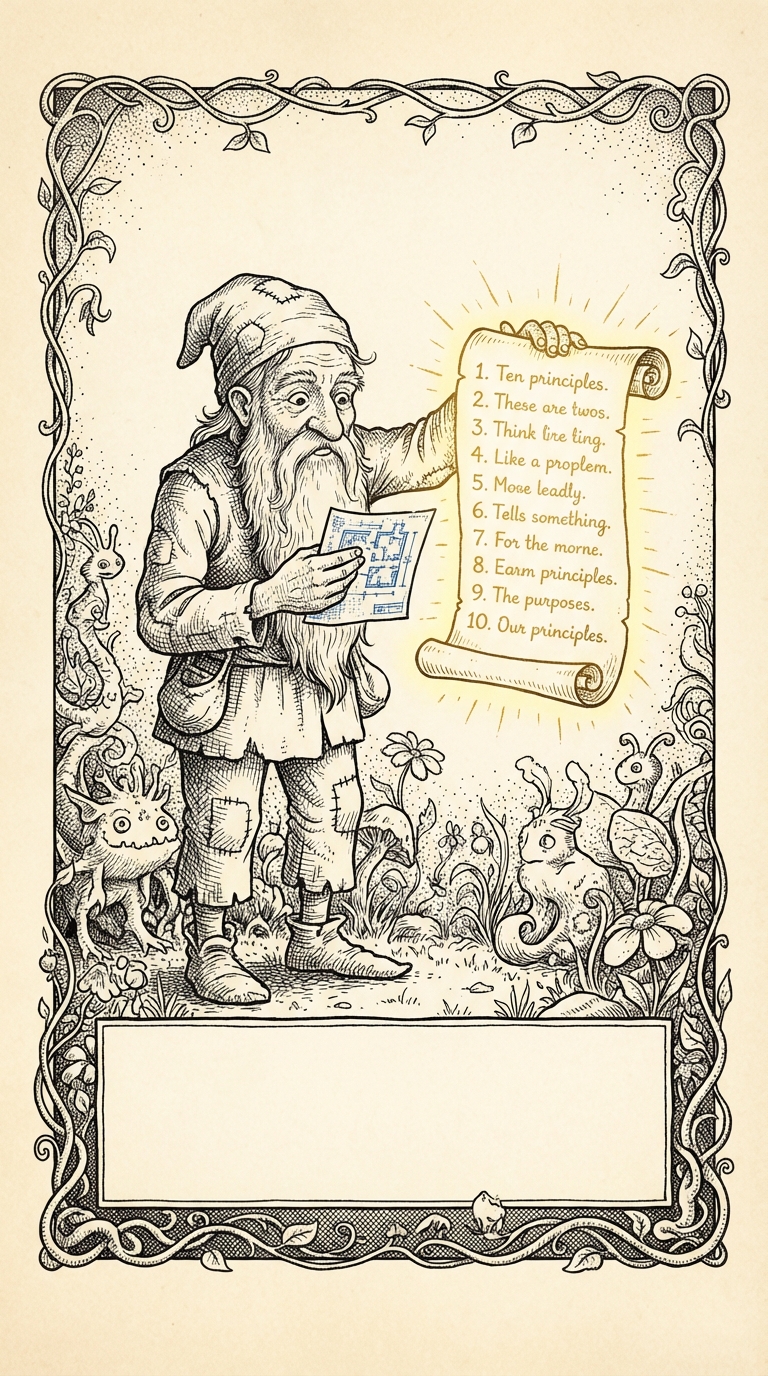 1. Ten principles.
2. These are twos.
3. Think lire ting.
4. Like a proplem.
5. Mose leadly.
6. Tells something.
7. For the morne.
8. Earm principles.
9. The purposes.
10. Our principles.